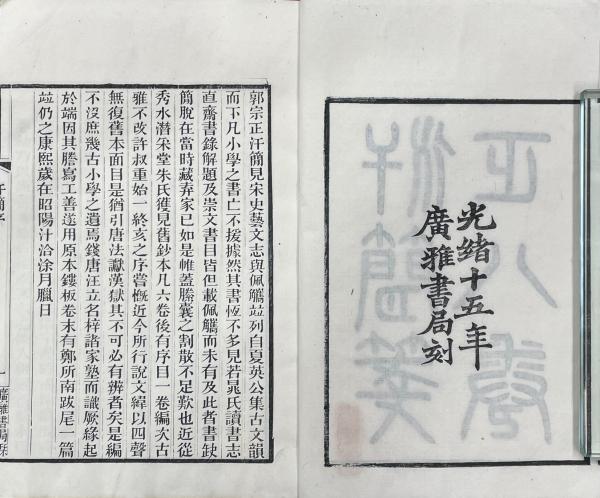 光緒十五年
廣雅書局刻
郭宗正汗簡見宋史藝文志與佩觿竝列自夏英公集古文韻
而下凡小學之書亡不援據然其書恆不多見若晁氏讀書志
直齋書錄解題及崇文書目皆但載佩觿而未有及此者書缺
簡脫在當時藏弆家已如是帷蓋縢囊之割散不足歎也近從
秀水潛采堂朱氏獲見舊鈔本凡六卷後有序目一卷編次古
雅不改許叔重始一終亥之序嘗慨近今所行說文緯以四聲
無復舊本面目是猶引唐法讞漢獄其不可必有辨者矣是編
不沒庶幾古小學之遺焉錢唐汪立名梓諸家塾而識厥緣起
於端因其謄寫工善遂用原本鏤板卷末有鄭所南跋尾一篇
竝仍之康熙歲在昭陽汁洽涂月臘日
廣雅書局栞